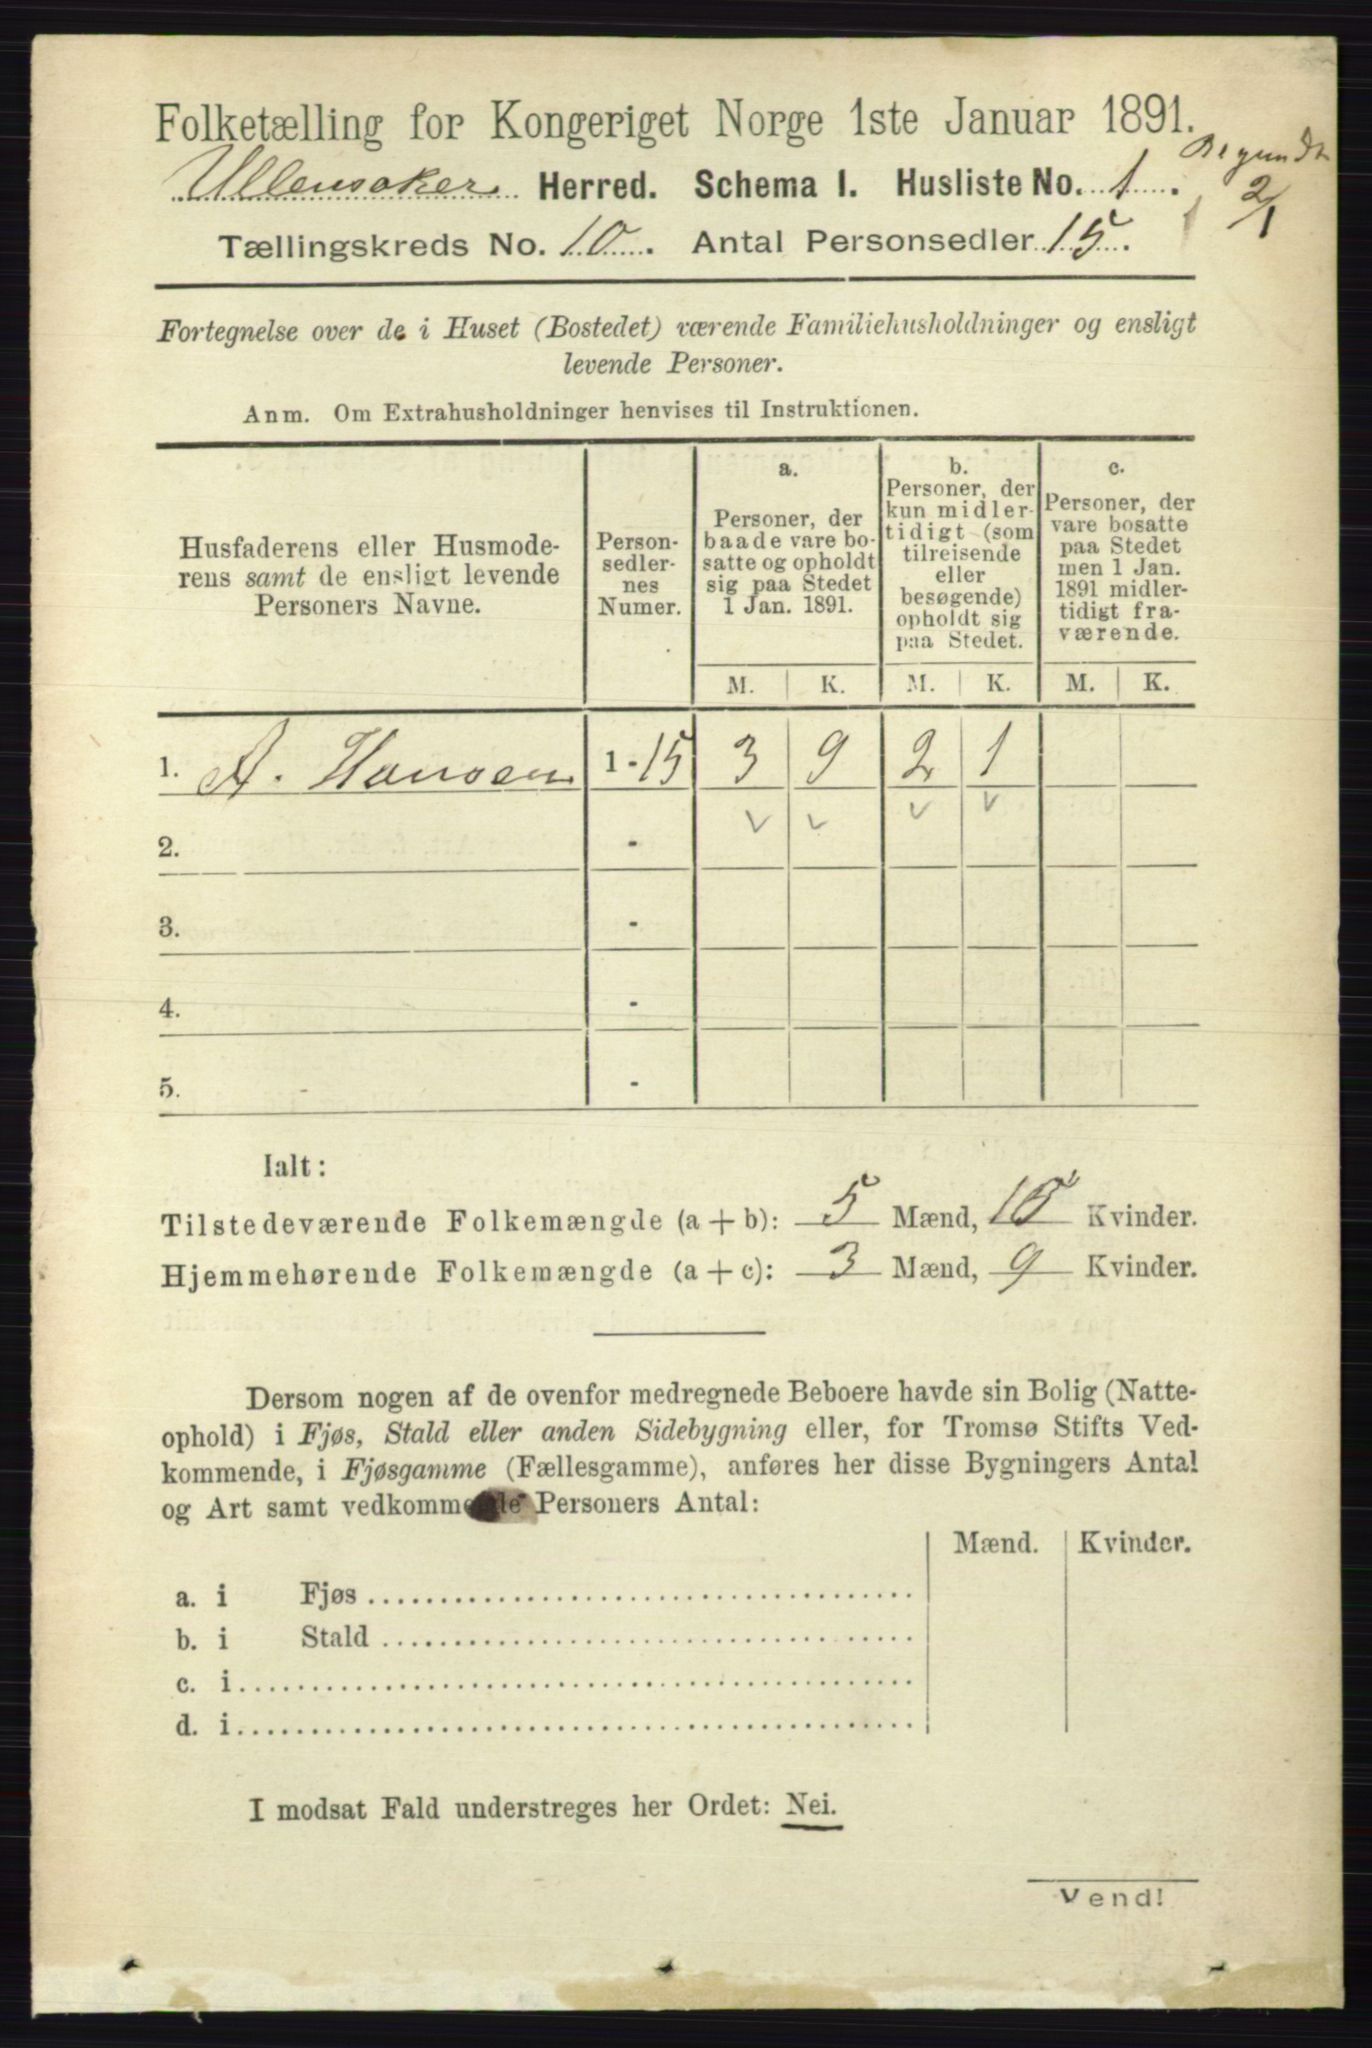 Folketælling for Kongeriget Norge 1ste Januar 1891.
Begyndt
2/1
Ullensaker Herred. Schema I. Husliste No. 1.
Tællingskreds No. 10. Antal Personsedler 15.
Fortegnelse over de i Huset (Bostedet) værende Familiehusholdninger og ensligt
levende Personer.
Anm. Om Extrahusholdninger henvises til Instruktionen.
Husfaderens eller Husmode-
rens samt de ensligt levende
Personers Navne.
Person-
sedler-
nes
Numer.
a.
Personer, der
baade vare bo-
satte og opholdt
sig paa Stedet
1 Jan. 1891.
b.
Personer, der
kun midler-
tidigt (som
tilreisende
eller
besøgende)
opholdt sig
paa Stedet.
c.
Personer, der
vare bosatte
paa Stedet
men 1 Jan.
1891 midler-
tidigt fra-
værende.
M. K. M. K. M. K.
1. A. Hansen 1 - 15 3 9 2 1
2. -
3. -
4. -
5. -
Ialt:
Tilstedeværende Folkemængde (a + b): 5 Mænd, Kvinder.
Hjemmehørende Folkemængde (a + c): 3 Mænd, 9 Kvinder.
Dersom nogen af de ovenfor medregnede Beboere havde sin Bolig (Natte-
ophold) i Fjøs, Stald eller anden Sidebygning eller, for Tromsø Stifts Ved-
kommende, i Fjøsgamme (Fællesgamme), anføres her disse Bygningers Antal
og Art samt vedkommende Personers Antal:
Mænd. Kvinder.
a. i Fjøs
b. i Stald
c. i
d. i
I modsat Fald understreges her Ordet: Nei.
Vend!